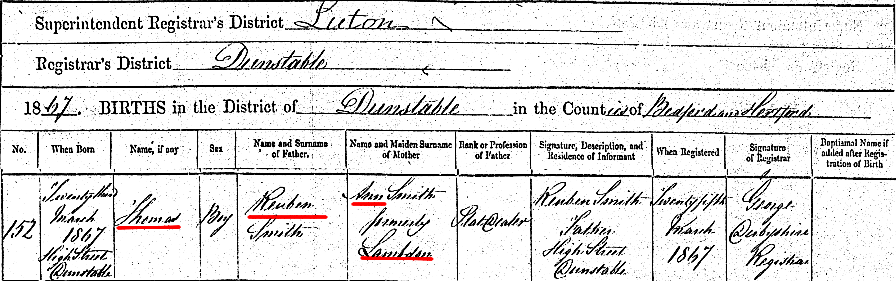 Superintendent Registrar's District Luton
Registrar's District Dunstable
1867. BIRTHS in the District of Dunstable in the Counties of Bedford and Hertford
No. When Born Name, if any Sex Name and Surname of Father. Name and Maiden Surname of Mother Rank or Profession of Father Signature, Description, and Residence of Informant When Registered Signature of Registrar Baptismal Name if added after Registration of Birth
152
Twenty third
March
1867
High Street
Dunstable
Thomas
Boy
Reuben
Smith
Ann Smith
formerly
Lambden
Plat Dealer
Reuben Smith
Father
High Street
Dunstable
Twenty fifth
March
1867
George
Derbyshire
Registrar